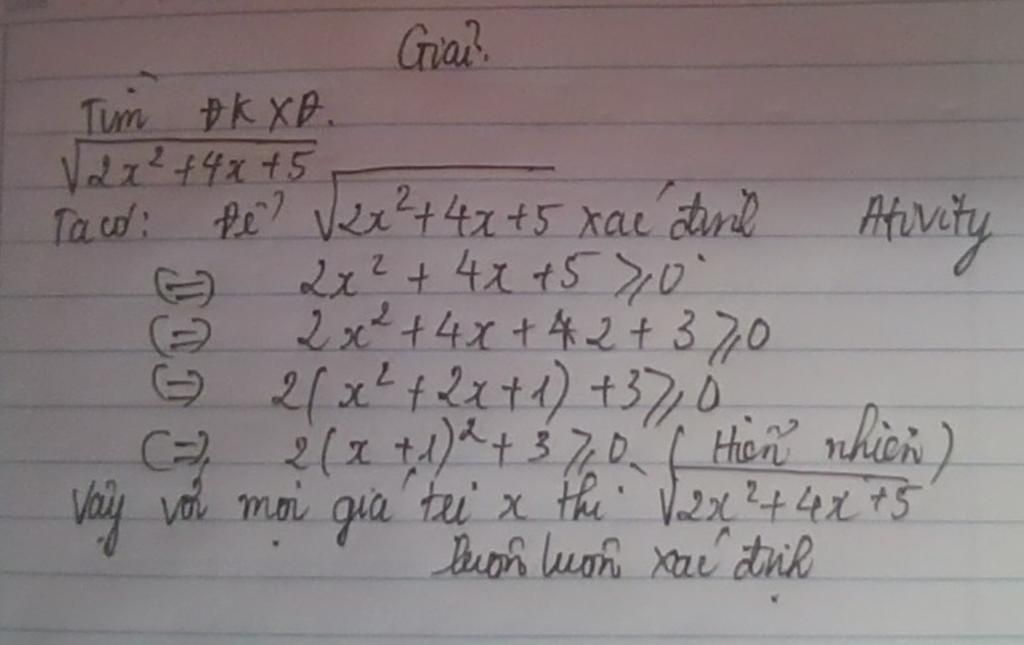 Giải.
Tìm ĐKXĐ.
√2x² + 4x + 5
Ta có: Để √2x² + 4x + 5 xác định Ativity
(=) 2x² + 4x + 5 ⩾ 0
(=) 2x² + 4x + 2 + 3 ⩾ 0
(=) 2(x² + 2x + 1) + 3 ⩾ 0
(=) 2(x + 1)² + 3 ⩾ 0. (Hiển nhiên)
Vậy với mọi giá trị x thì √2x² + 4x + 5
luôn luôn xác định